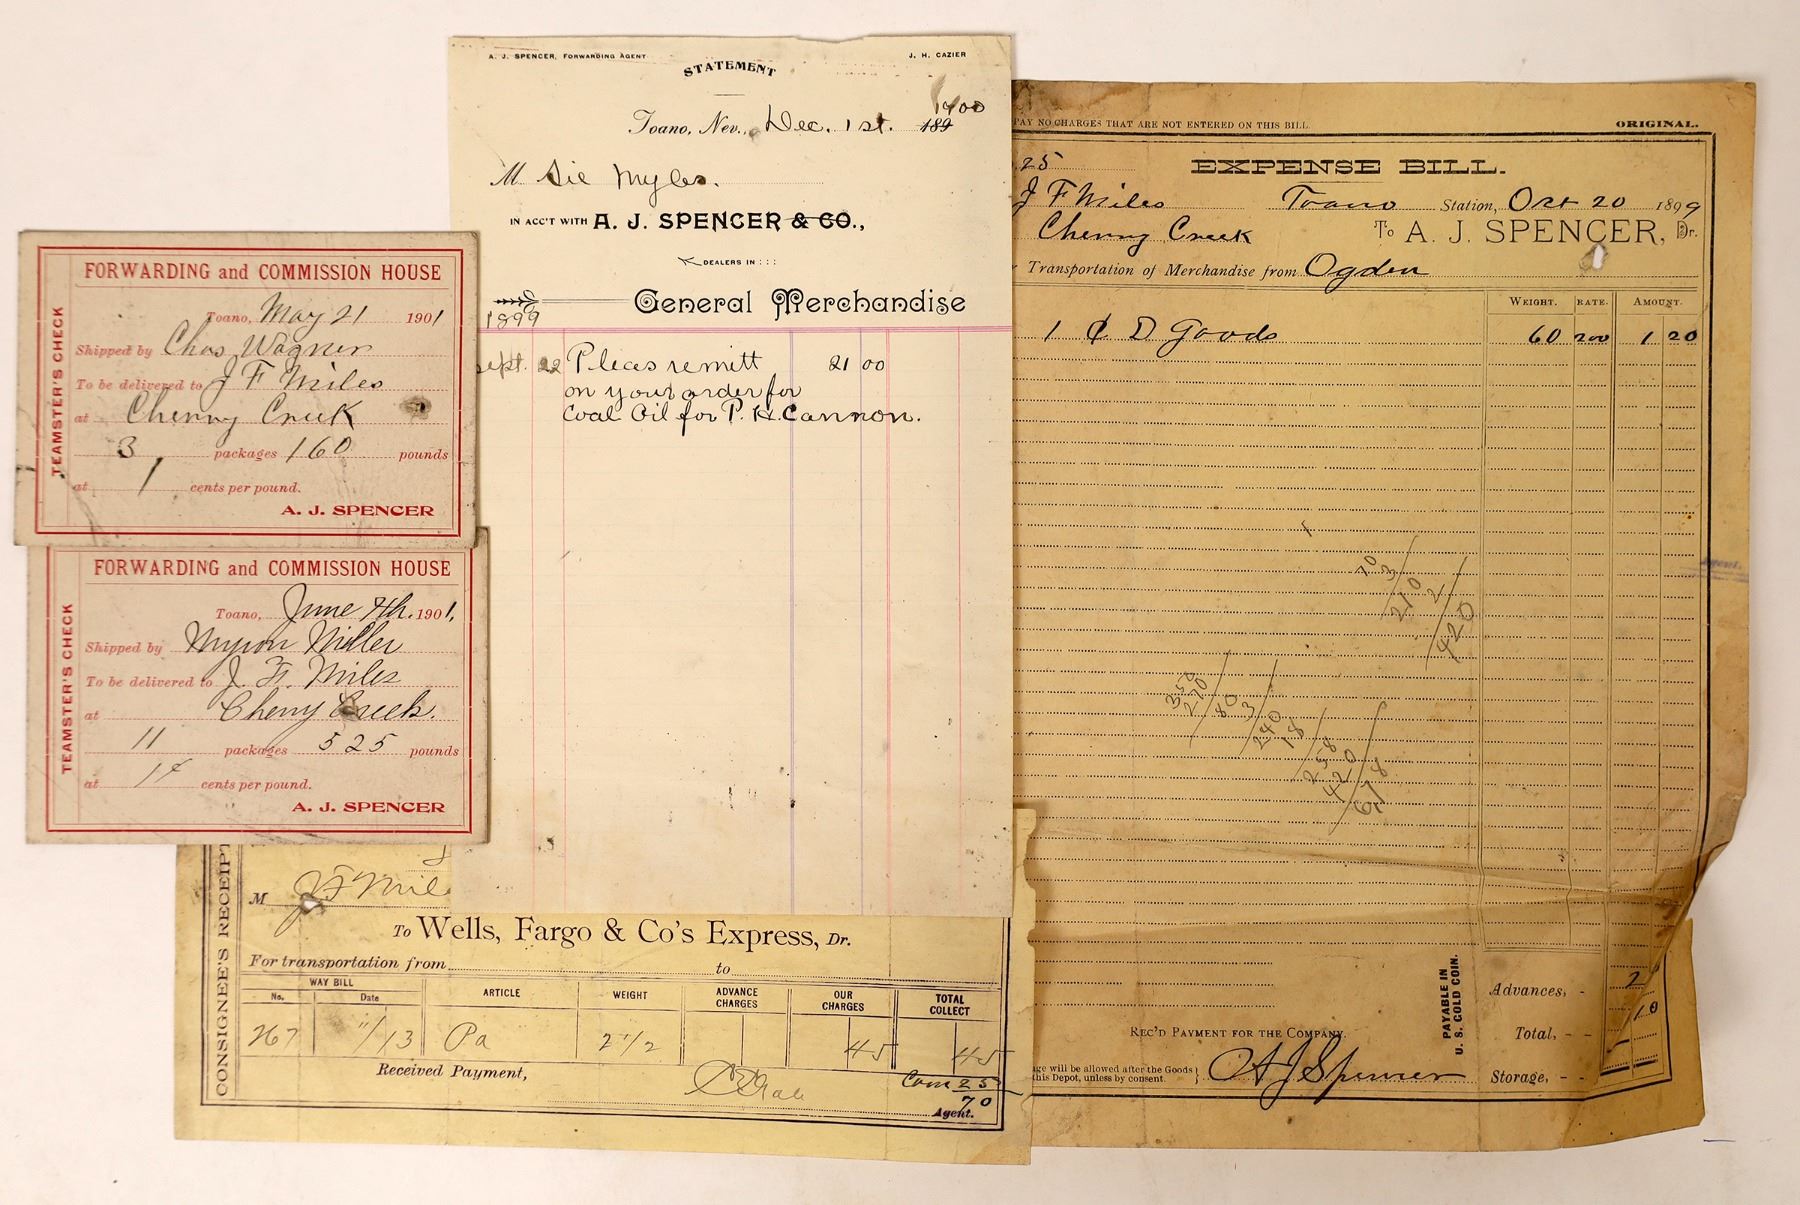 FORWARDING and COMMISSION HOUSE
TEAMSTER'S CHECK
Toano, May 21 1901
Shipped by Chas Wagner
To be delivered to J F Miles
at Cherry Creek
3 packages 160 pounds
at 1 cents per pound.
A. J. SPENCER
FORWARDING and COMMISSION HOUSE
TEAMSTER'S CHECK
Toano, June 7th. 1901,
Shipped by Myron Miller
To be delivered to J. F. Miles
at Cherry Creek.
11 packages 525 pounds
at 1¢ cents per pound.
A. J. SPENCER
A. J. SPENCER, FORWARDING AGENT J. H. CAZIER
STATEMENT
1900
Toano, Nev., Dec. 1st. 189
M Sie Myles.
IN ACC'T WITH A. J. SPENCER & CO.,
DEALERS IN : : :
General Merchandise
1899
Sept. 22 Pleas remitt 21 00
on your order for
Coal Oil for P. H. Cannon.
CONSIGNEE'S RECEIPT
M J F Mile
To Wells, Fargo & Co's Express, Dr.
For transportation from to
WAY BILL ARTICLE WEIGHT ADVANCE CHARGES OUR CHARGES TOTAL COLLECT
No. Date
267 11/13 Pa 2 1/2 45 45
Received Payment,
Com 25
70
Agent.
PAY NO CHARGES THAT ARE NOT ENTERED ON THIS BILL. ORIGINAL.
25
EXPENSE BILL.
J F Miles Toano Station, Oct 20 1899
Cherry Creek To A. J. SPENCER, Dr.
Transportation of Merchandise from Ogden
WEIGHT. RATE. AMOUNT.
1 C D Goods 60 200 1 20
70
3
210
2
420
350
270
80
3
240
18
258
420
678
PAYABLE IN
U. S. GOLD COIN.
Advances, -
REC'D PAYMENT FOR THE COMPANY.
Total, - - 10
ge will be allowed after the Goods
this Depot, unless by consent. A J Spencer
Storage, - -